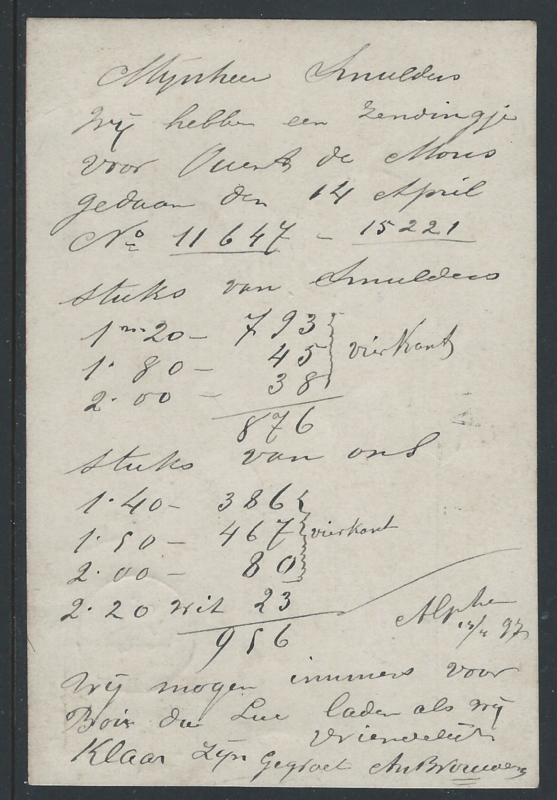 Mijnheer Smulders
Wij hebben een zendingje
voor Quent de Mons
gedaan den 14 April
No 11647 - 15221
stuks van Smulders
1 m 20 - 793
1.80 - 45 vierkant
2.00 - 38
876
stuks van ons
1.40 - 386
1.50 - 467 vierkant
2.00 - 80
2.20 wit 23
956
Alphen
97
Wij mogen immers voor
Bois du Luc laden als wij
Klaar zijn vriendelijk
gegroet An Brouwers